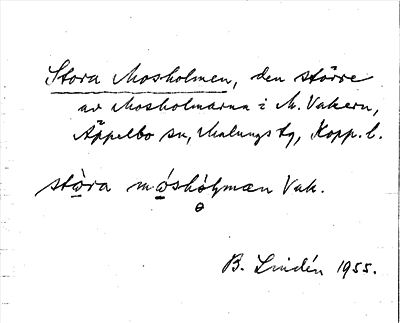 Stora Mosholmen, den större
av Mosholmarna i M. Vakern,
Äppelbo sn, Malungs tg, Kopp. l.
stòra móshólmæn Vak.
B. Lindén 1955.